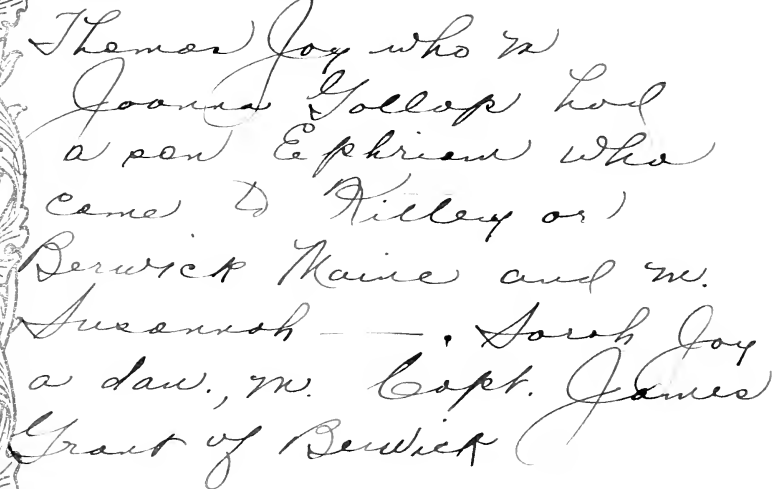 Thomas Joy who m
Joanna Gollop had
a son Ephriam who
came to Killey or
Berwick Maine and m.
Susannah — —. Sarah Joy
a dau., m. Capt. James
Grant of Berwick